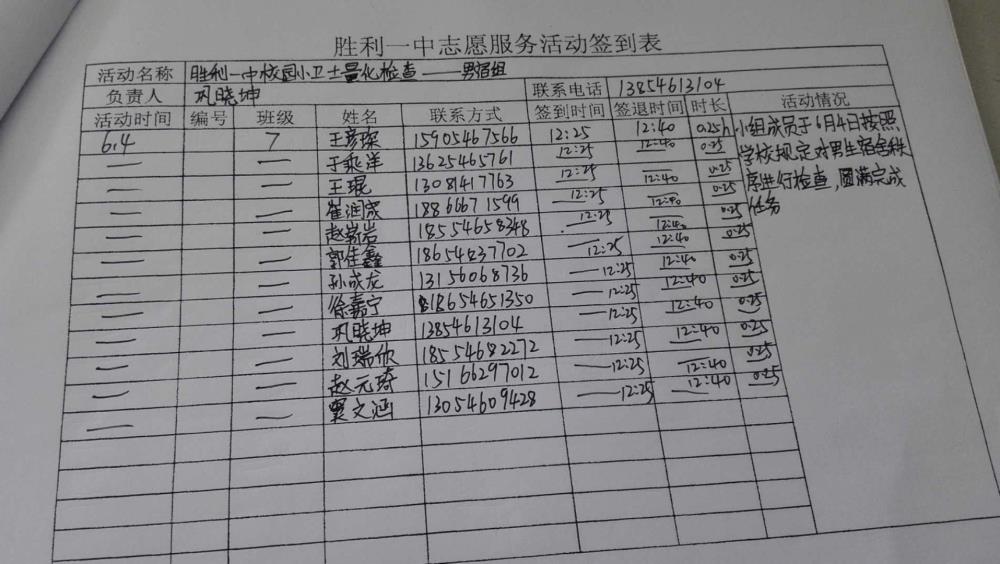 胜利一中志愿服务活动签到表
活动名称 胜利一中校园小卫士量化检查——男宿组
负责人 巩晓坤 联系电话 13854613104
活动时间 编号 班级 姓名 联系方式 签到时间 签退时间 时长 活动情况
6.4 7 王彦琛 15905467566 12:25 12:40 0.25h
于乘洋 13625465761 12:25 12:40 0.25
王琨 13081417763 12:25 12:40 0.25
崔润成 18866671599 12:25 12:40 0.25
赵崭岩 18554658348 12:25 12:40 0.25
郭佳鑫 18654837702 12:25 12:40 0.25
孙成龙 13156068736 12:25 12:40 0.25
徐嘉宁 18654651350 12:25 12:40 0.25
巩晓坤 13854613104 12:25 12:40 0.25
刘瑞欣 18554682272 12:25 12:40 0.25
赵元琦 15166297012 12:25 12:40 0.25
贾文涵 13054609428 12:25 12:40 0.25
小组成员于6月4日按照
学校规定对男生宿舍秩
序进行检查,圆满完成
任务